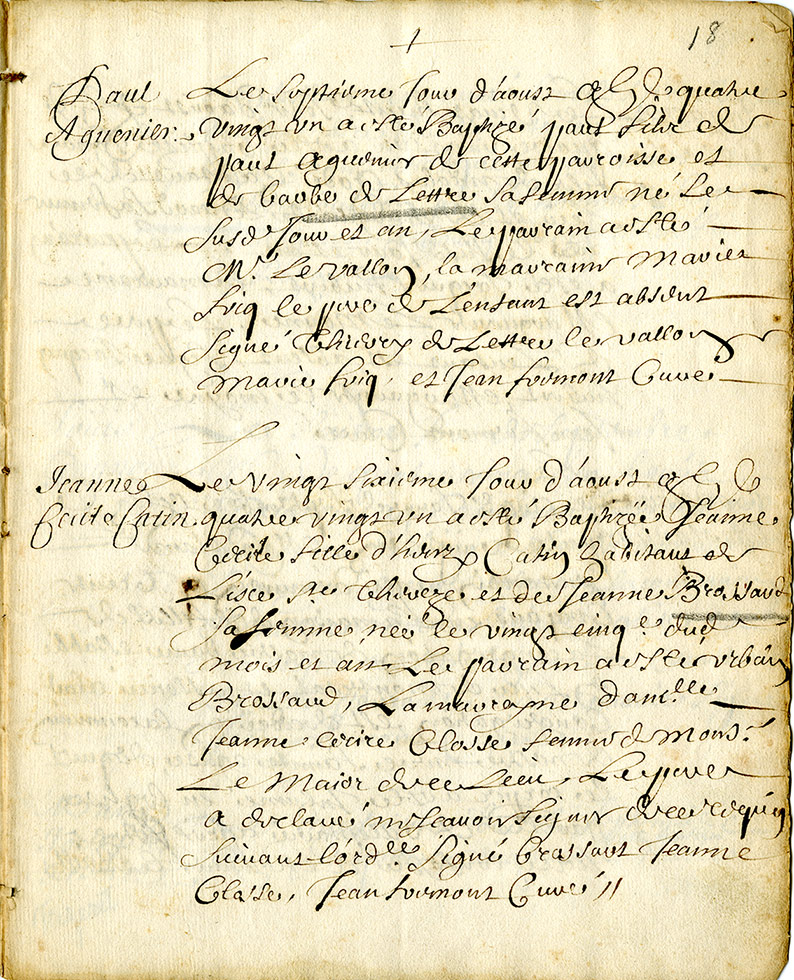 18
Paul Le septieme Jour d'aoust gbjc quatre
Aguenier. vingt vn a esté Baptizé paul filz de
paul aguenier de cette parroisse et
de barbe de Lettre sa femme né Le
susd Jour et an, Le parain a esté
Mr. Le vallon, la maraine Marie
friq le pere de L'enfant est absent
signé Thierry de Lettre le vallon
Marie friq, et Jean fremont Curé
Jeanne Le vingt sixieme Jour d'aoust
Cecile Catin. quatre vingt vn a esté Baptizée Jeanne
Cecile fille d'henry Catin habitant de
Lisle Ste Thereze et de Jeanne Brossard
sa femme née le vingt cinq.e dud
mois et an Le parain a esté vrbain
Brossard, La maraine dam.lle
Jeanne Cecire Closse femme de Mons.r
Le Maior de ce Lieu, Le pere
a declaré ne scavoir signer de ce requis
suivant l'ord.ce signé brassart Jeanne
Closse, Jean fremont Curé //